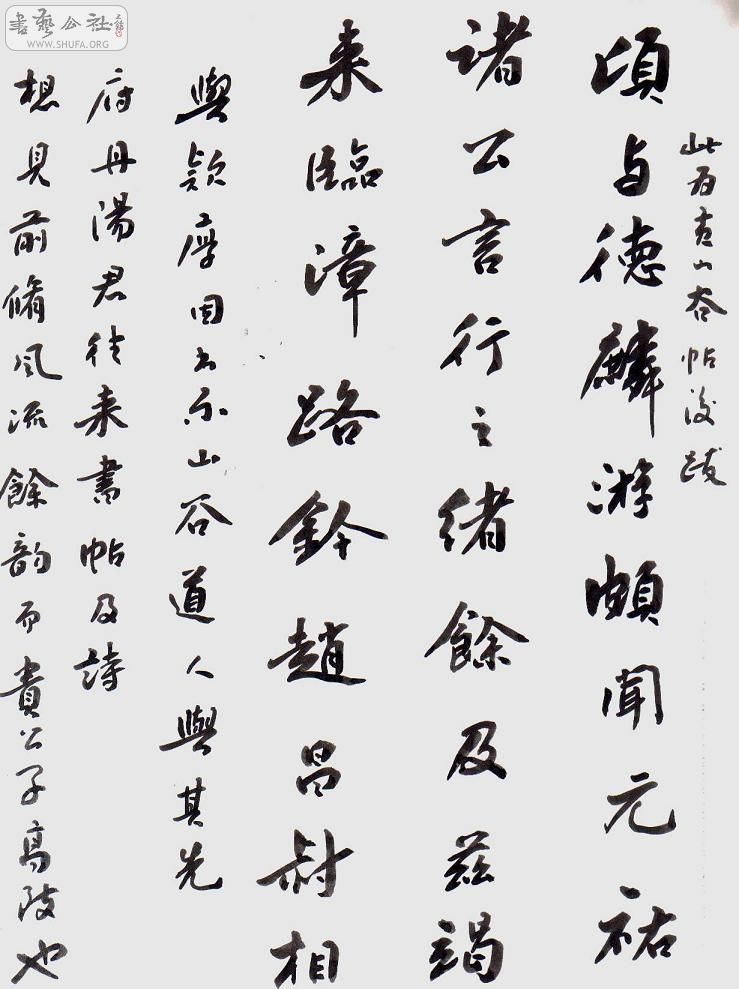 書藝公社
WWW.SHUFA.ORG
此为黄山谷帖後跋
頃与德麟游頗聞元祐
諸公言行之緒餘及茲謁
来臨漳路鈐趙昌尉相
與款厚因出示山谷道人與其先
府丹湯君往来書帖及詩
想見前脩风流餘韵而貴公子高致也